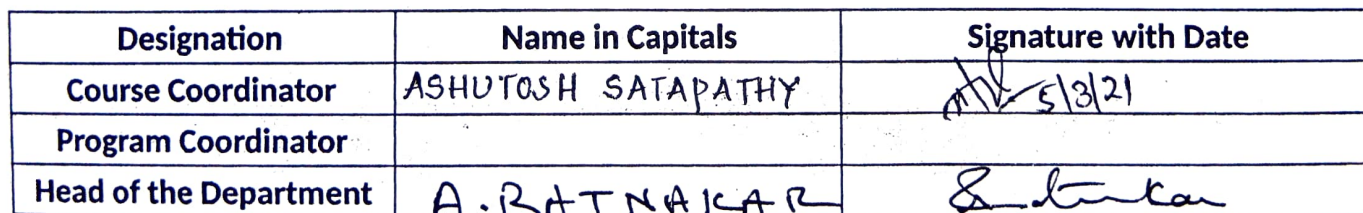 Designation Name in Capitals Signature with Date
Course Coordinator ASHUTOSH SATAPATHY 5/3/21
Program Coordinator
Head of the Department A. RATNAKAR